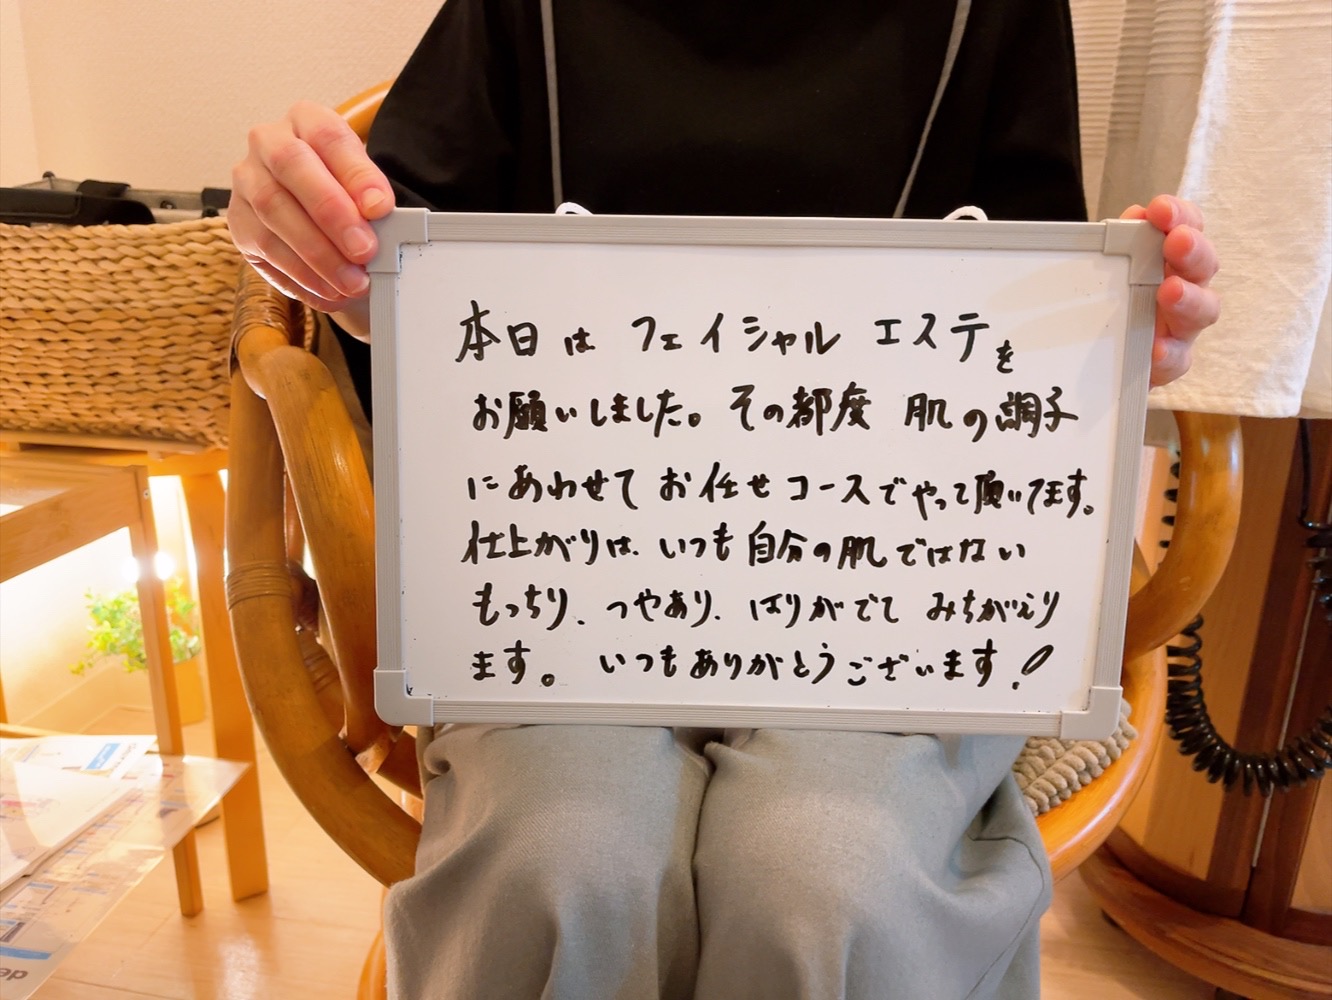 本日は フェイシャル エステを
お願いしました。その都度 肌の調子
にあわせて お任せコースでやって頂いてます。
仕上がりは、いつも自分の肌ではない
もっちり、つやあり、はりがでて みちがえり
ます。 いつもありがとうございます!
de